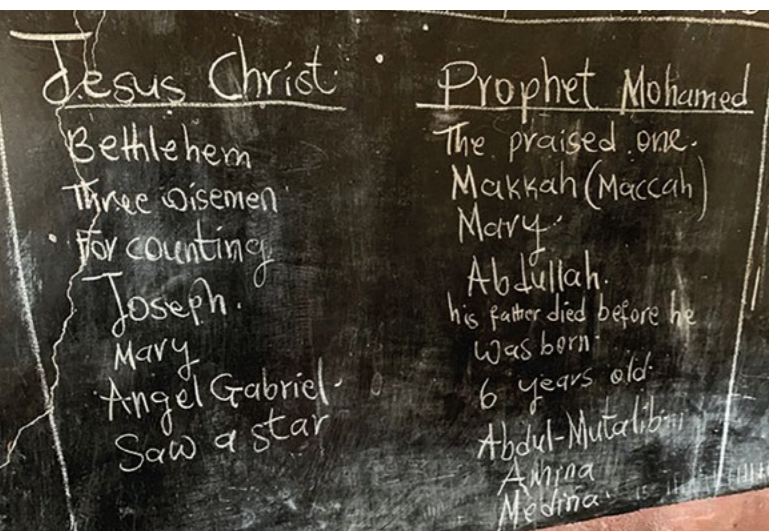 Jesus Christ.
Bethlehem
Three wisemen
For counting
Joseph.
Mary
Angel Gabriel.
Saw a star
Prophet Mohamed
The praised one.
Makkah (Maccah)
Mary.
Abdullah.
his father died before he
was born.
6 years old.
Abdul-Mutalib
Amina
Medina.